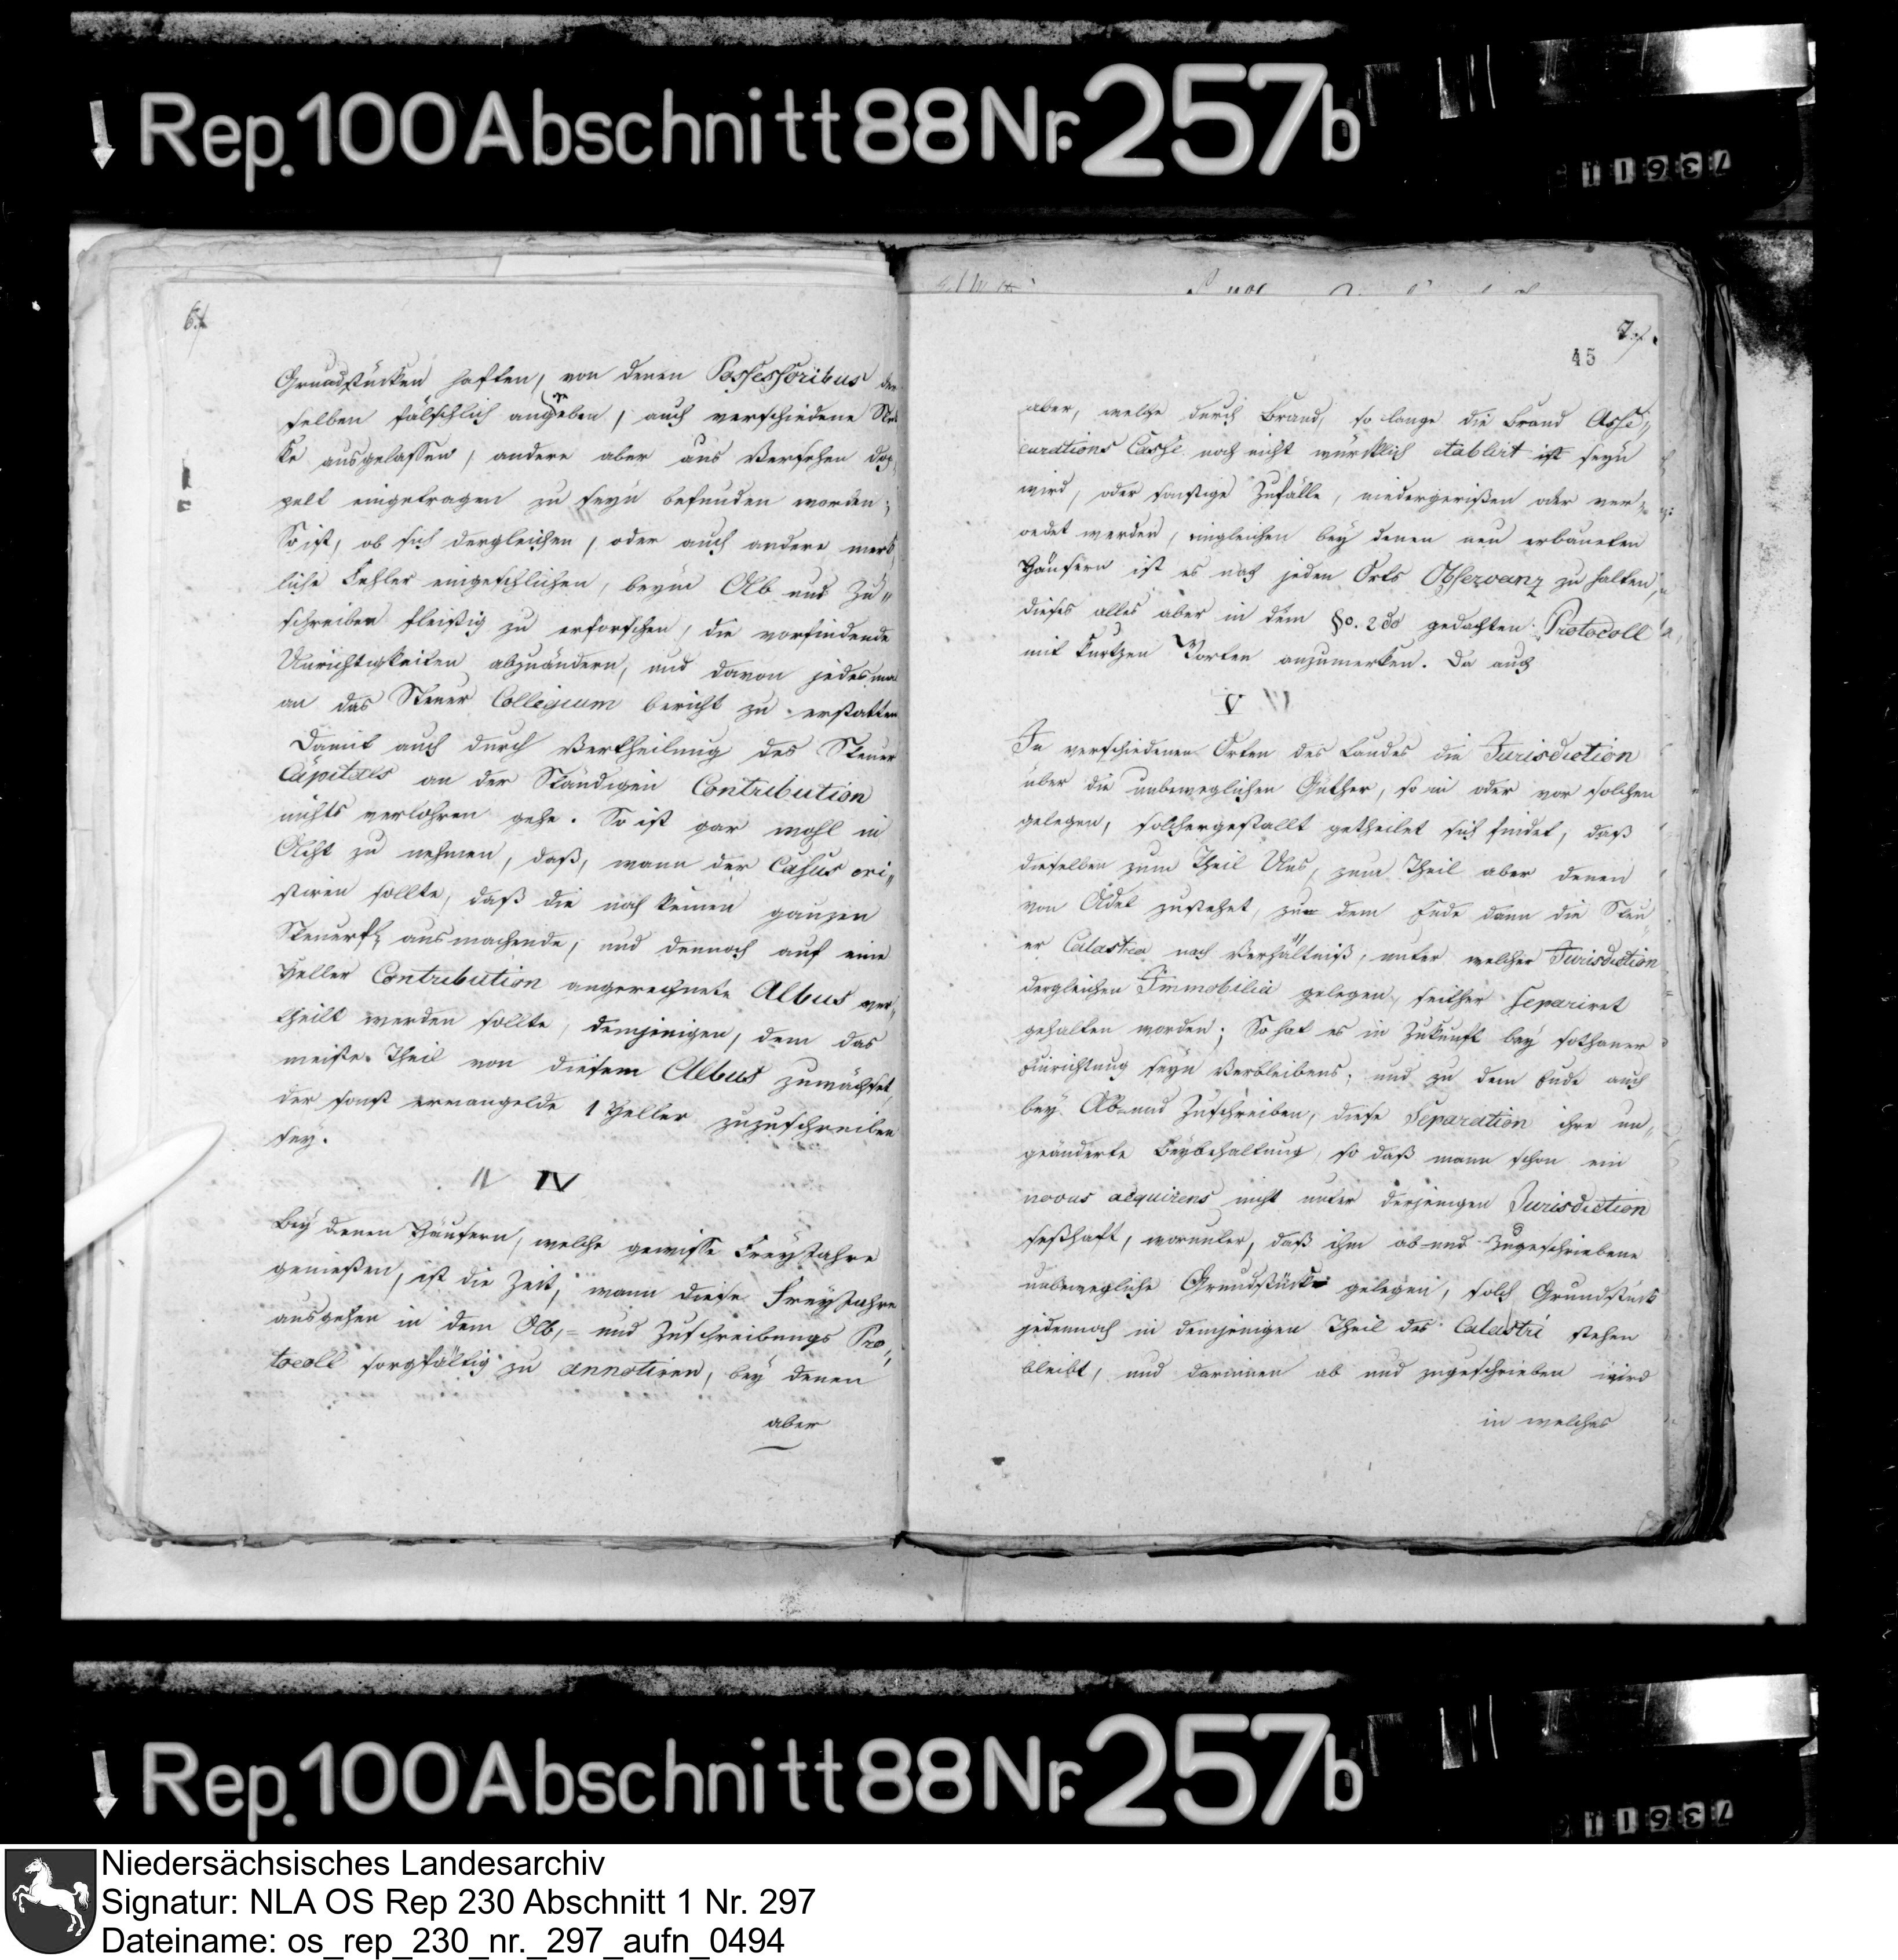 Rep. 100 Abschnitt 88 Nr. 257b
11637
6.
Grundstücken haften, von denen Possessoribus der
selben fälschlich angegeben, auch verschiedene Stü
ke ausgelassen, andere aber aus Versehen dop
pelt eingetragen zu seyn befunden worden;
So ist, ob sich dergleichen, oder auch andere merk
liche Fehler eingeschlichen, beym Ab und Zu„
schreiben fleißig zu erforschen, die vorfindende
Unrichtigkeiten abzuändern, und davon jedesma
an das Steuer Collegium bericht zu erstatten
Damit auch durch Vertheilung des Steuer
Capitals an der Ständigen Contribution
nichts verlohren gehe. So ist gar wohl in
Acht zu nehmen, daß, wann der Casus exi„
stiren sollte, daß die noch keinen ganzen
Steuerfl. ausmachende, und dennoch auf eine
Heller Contribution angerechnete Albus ver„
theilt werden sollte, demjenigen, dem das
meiste Theil von diesem Albus zuwächset,
der sonst ermangelde 1 Heller zuzuschreiben
sey.
IV IV
Bey denen Häusern, welche gewisse FreyJahre
genießen, ist die Zeit, wann diese FreyJahre
ausgehen in dem Ab,= und Zuschreibungs Pro„
tocoll sorgfältig zu annotiren, bey denen
aber
7.
45
aber, welche durch Brand, so lange die Brand Asse„
curations Casse noch nicht würcklich etablirt ist seyn
wird, oder sonstige Zufälle, niedergerißen oder ver„
oedet werden, imgleichen bey denen neu erbaueten
Häusern ist es nach jeden Orts Observanz zu halten,
dieses alles aber in dem §o. 2do gedachten Protocoll
mit kurtzen Worten anzumerken. Da auch
V VI
In verschiedenen Orten des Landes die Jurisdiction
über die unbeweglichen Güther, so in oder vor solchen
gelegen, solchergestallt getheilet sich findet, daß
dieselben zum Theil Uns, zum Theil aber denen
von Adel zustehet, zu dem Ende dann die Steu„
er Catastra nach Verhältniß, unter welcher Jurisdiction
dergleichen Immobilia gelegen, seither separiret
gehalten worden; So hat es in Zukunft bey sothaner
Einrichtung seyn Verbleibens; und zu dem Ende auch
bey Ab und Zuschreiben, diese Separation ihre un„
geänderte Beybehaltung, so daß wann schon ein
novus acquirens nicht unter derjenigen Jurisdiction
seßhaft, worunter, daß ihm ab und zugeschriebene
unbewegliche Grundstück gelegen, solch Grundstück
jedennoch in demjenigen Theil des Catastri stehen
bleibt, und darinnen ab und zugeschrieben wird
in welches
Rep. 100 Abschnitt 88 Nr. 257b
11637
Niedersächsisches Landesarchiv
Signatur: NLA OS Rep 230 Abschnitt 1 Nr. 297
Dateiname: os_rep_230_nr._297_aufn_0494